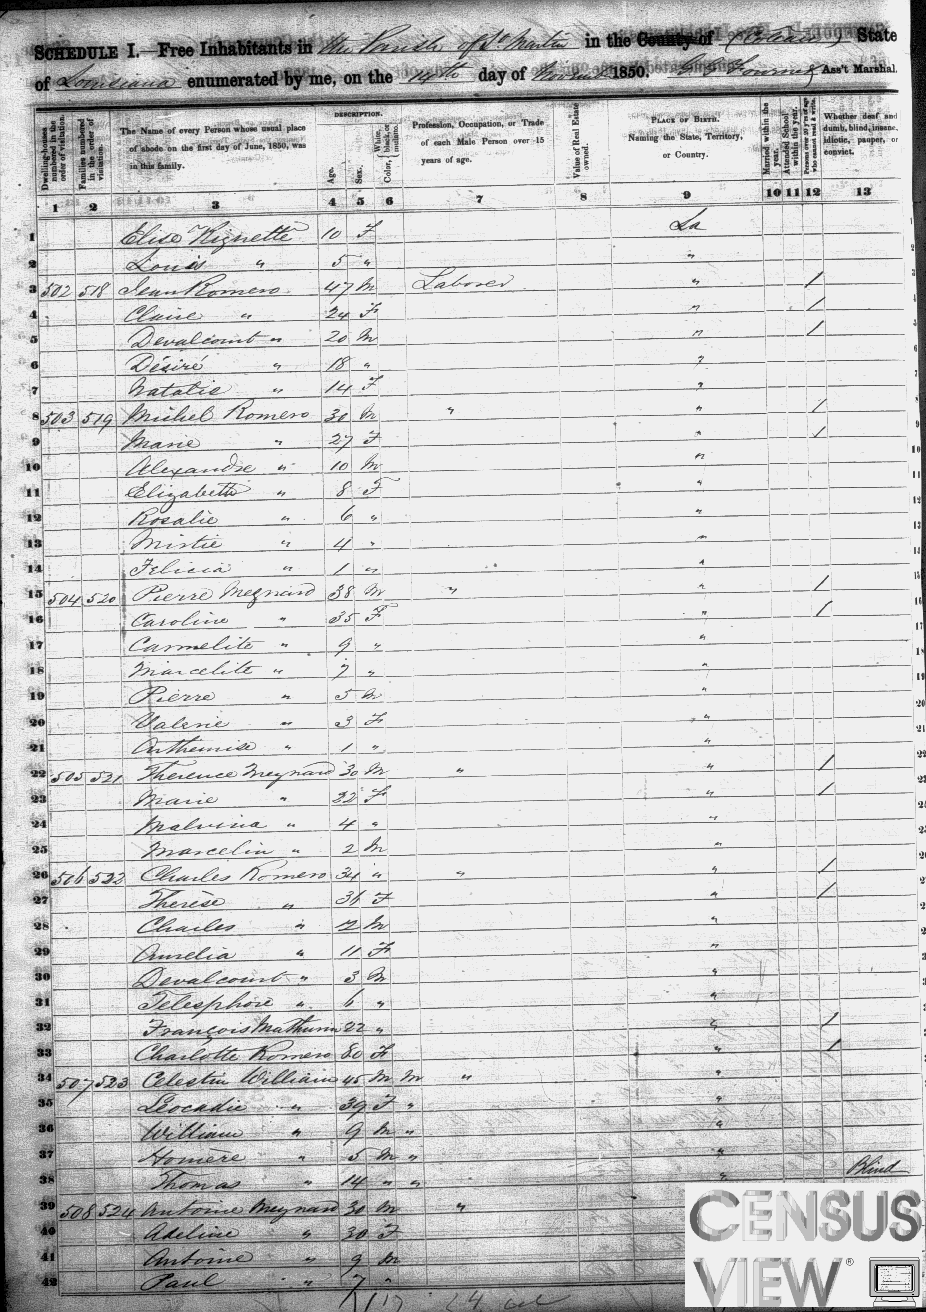 SCHEDULE I.—Free Inhabitants in the Parish of St Martin in the County of (Orleans) State
of Louisiana enumerated by me, on the 14th day of 1850. Ass't Marshal.
Dwelling-houses numbered in the order of visitation.
Families numbered in the order of visitation.
The Name of every Person whose usual place of abode on the first day of June, 1850, was in this family.
DESCRIPTION.
Age.
Sex.
Color, White, black, or mulatto.
Profession, Occupation, or Trade of each Male Person over 15 years of age.
Value of Real Estate owned.
PLACE OF BIRTH. Naming the State, Territory, or Country.
Married within the year.
Attended School within the year.
Persons over 20 y'rs of age who cannot read & write.
Whether deaf and dumb, blind, insane, idiotic, pauper, or convict.
1 2 3 4 5 6 7 8 9 10 11 12 13
1 Elise 10 F La
2 Louis " 5 " "
3 502 518 Jean Romero 47 M Laborer " /
4 Claire " 24 F " /
5 Devalcourt " 20 M " /
6 Désiré " 18 " "
7 Natalie " 14 F "
8 503 519 Michel Romero 30 M " " /
9 Marie " 27 F " /
10 Alexandre " 10 M "
11 Elizabeth " 8 F "
12 Rosalie " 6 " "
13 Mirtie " 4 " "
14 Felicia " 1 " "
15 504 520 Pierre Megnard 38 M " " /
16 Caroline " 35 F " /
17 Carmelite " 9 " "
18 Marcelite " 7 " "
19 Pierre " 5 M "
20 Valerie " 3 F "
21 Arthemise " 1 " "
22 505 521 Therence Meynard 30 M " " /
23 Marie " 22 F " /
24 Malvina " 4 " "
25 Marcelin " 2 M "
26 506 522 Charles Romero 34 " " " /
27 Therèse " 36 F " /
28 Charles " 2 M "
29 Aurelia " 11 F "
30 Devalcourt " 3 M "
31 Telesphore " 6 " "
32 François Mathurin 22 " " /
33 Charlotte Romero 80 F " /
34 507 523 Celestin William 45 M M " "
35 Leocadie " 39 F " "
36 William " 9 M " "
37 Homère " 5 M " "
38 Thomas " 14 " " " Blind
39 508 524 Antoine Meynard 30 M "
40 Adeline " 30 F
41 Antoine " 9 M
42 Paul " 7 "
CENSUS
VIEW®